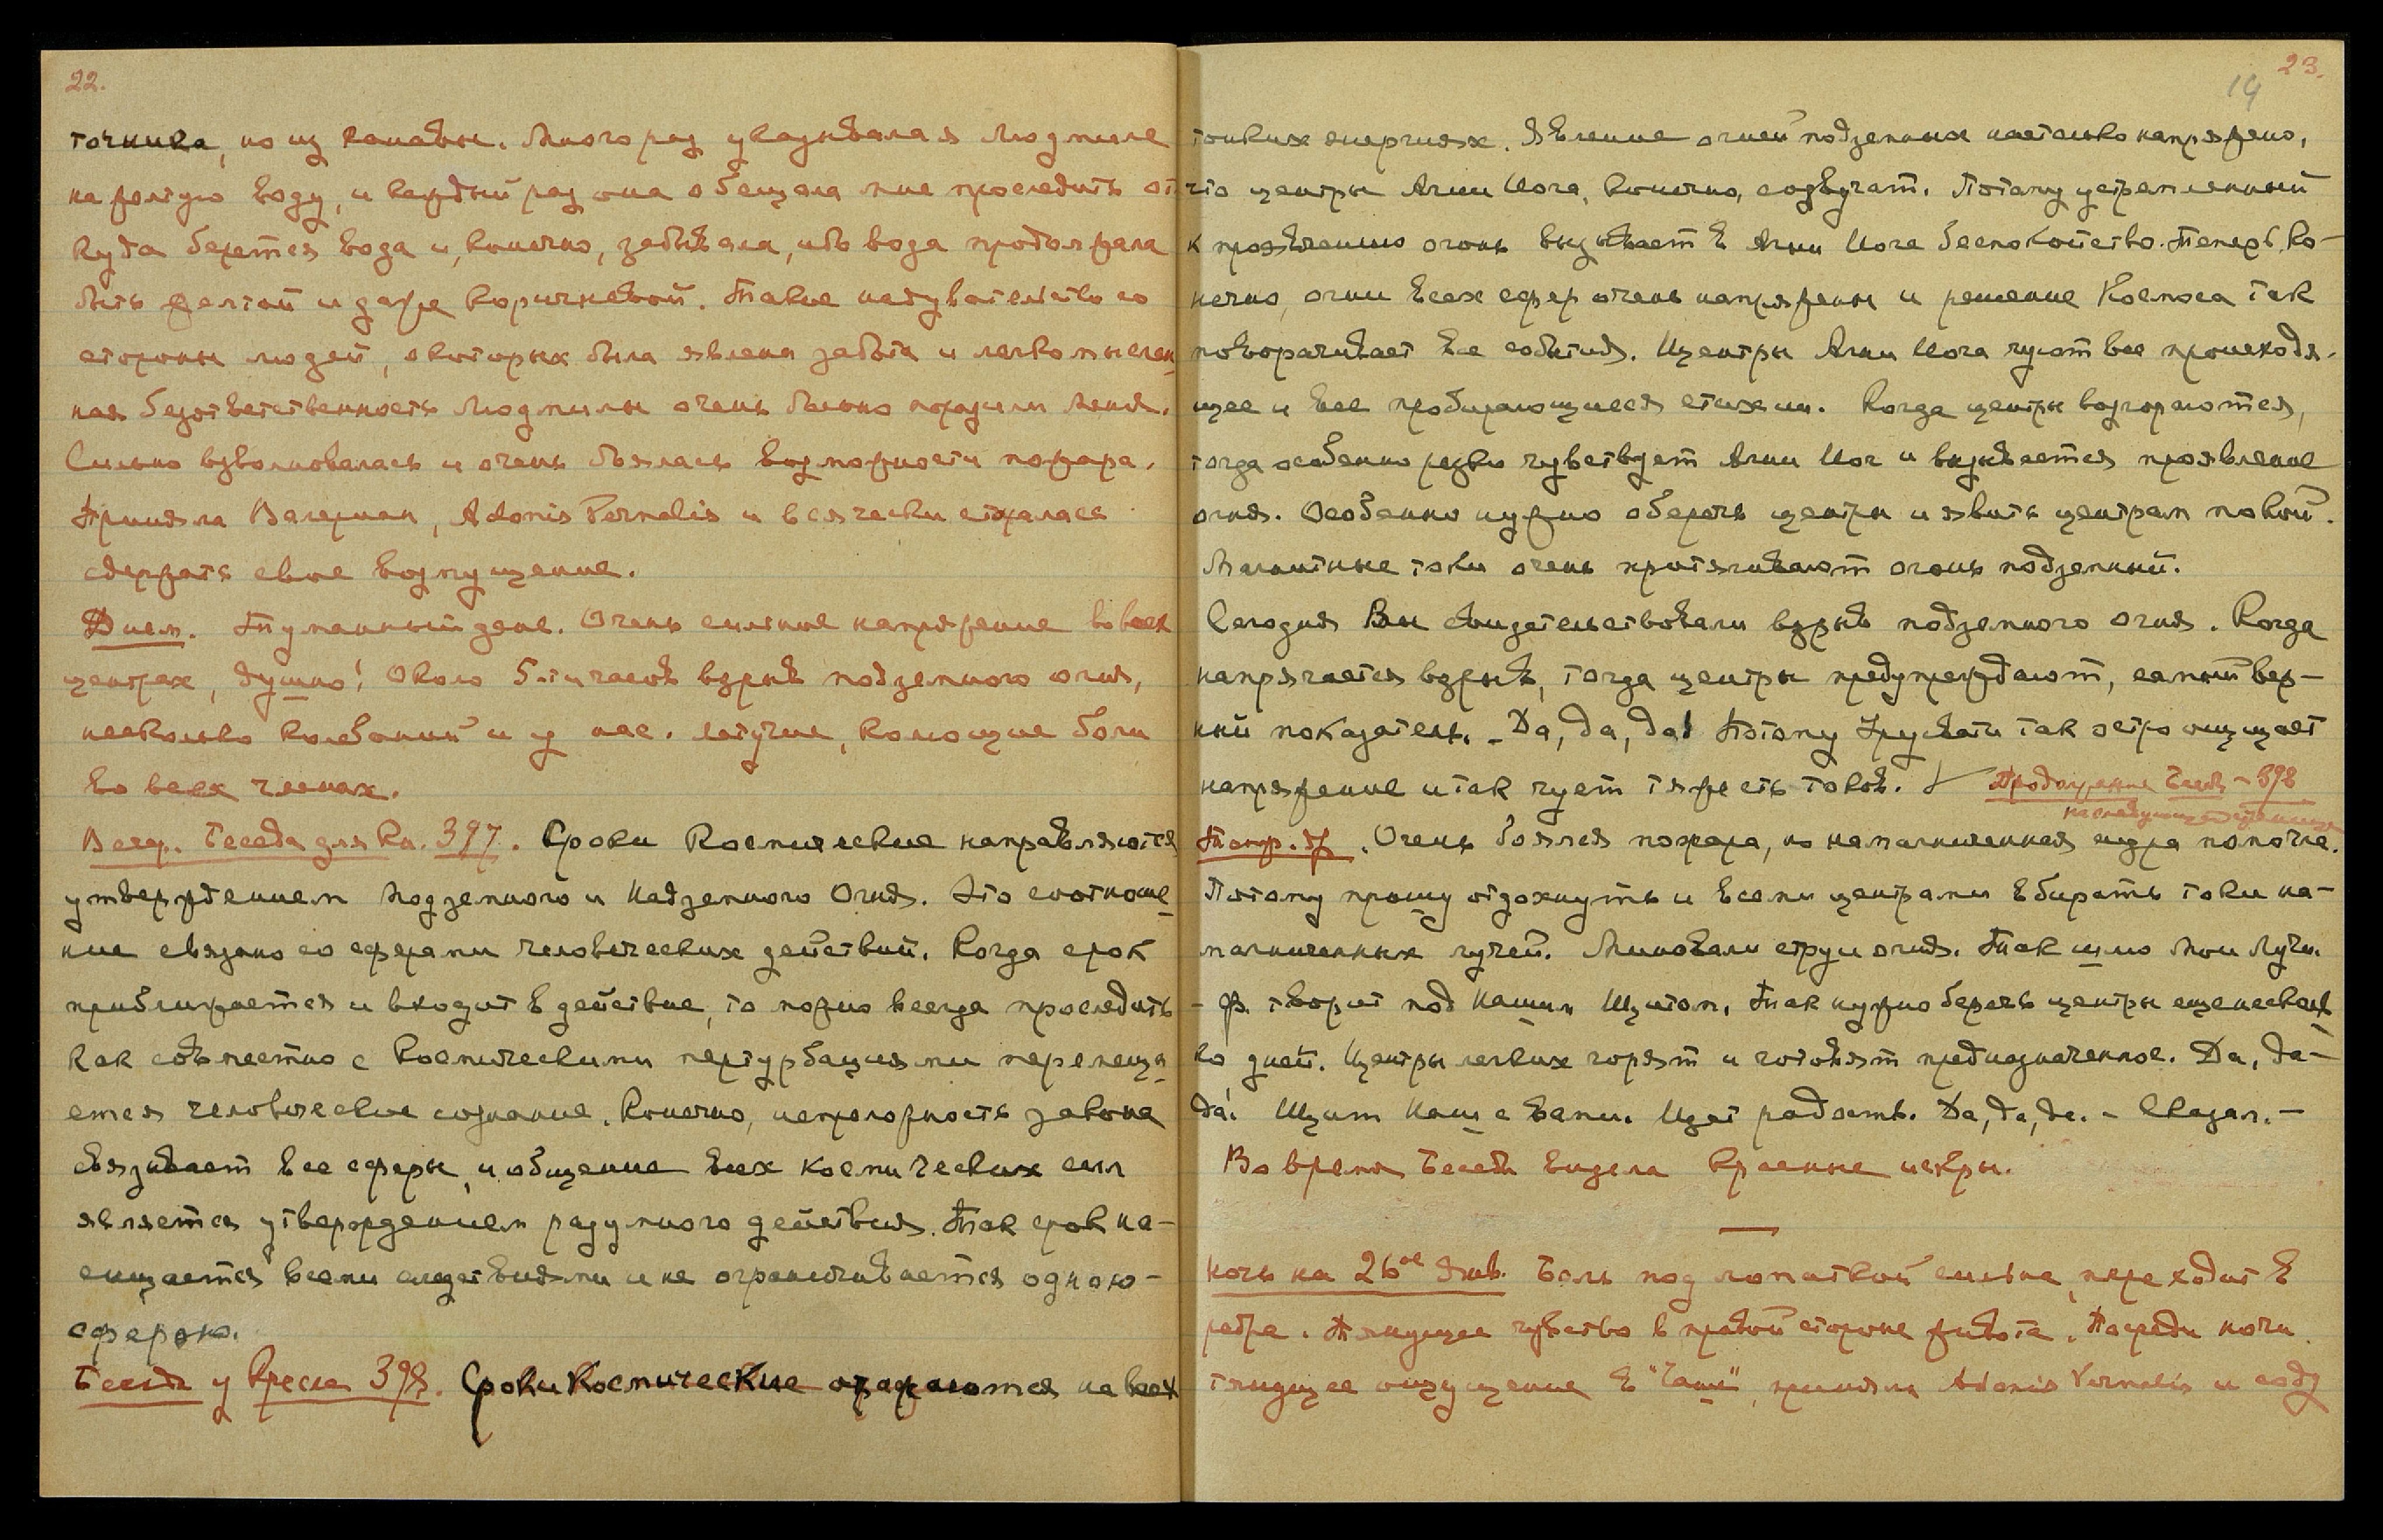 22.
точника, но из канавы. Много раз указывала я Людмиле
на желтую воду, и каждый раз она обещала мне проследить от
куда берется вода и, конечно, забывала, ибо вода продолжала
быть желтой и даже коричневой. Такое надувательство со
стороны людей, о которых была явлена забота и легкомыслен
ная безответственность Людмилы очень больно поразили меня.
Сильно взволновалась и очень боялась возможности пожара.
Приняла Валериан, Adonis Vernalis и всячески старалась
сдержать свое возмущение.
Днем. Туманный день. Очень сильное напряжение во всех
центрах, душно! Около 5-ти часов взрыв подземного огня,
несколько колебаний и у нас. Летучие, колющие боли
во всех членах.
Вечер. Беседа для Кн. 397. Сроки Космические направляются
утверждением подземного и надземного Огня. Это соотноше
ние связано со сферами человеческих действий. Когда срок
приближается и входит в действие, то можно всегда проследить
как совместно с Космическими пертурбациями перемеща
ется человеческое сознание. Конечно, непреложность закона
связывает все сферы, и общение всех космических сил
является утверждением разумного действия. Так срок на-
сыщается всеми следствиями и не ограничивается одною-
сферою.
Беседа у Кресла 398. Сроки Космические отражаются на всех
23.
14
тонких энергиях. Явление огней подземных настолько напряжено,
что центры Агни Йога, конечно, созвучат. Потому устремленный
к проявлению огонь вызывает в Агни Йоге беспокойство. Теперь, ко-
нечно, огни всех сфер очень напряжены и решение Космоса так
поворачивает все события. И центры Агни Йога чуют все происходя-
щее и все пробирающиеся стихии. Когда центры возгораются,
тогда особенно резко чувствует Агни Йог и вызывается проявление
огня. Особенно нужно оберечь центры и явить центрам покой.
Магнитные токи очень притягивают огонь подземный.
Сегодня Вы свидетельствовали взрыв подземного огня. Когда
напрягается взрыв, тогда центры предупреждают, самый вер-
ный показатель. - Да, да, да! Потому Урусвати так остро ощущает
напряжение и так чует тяжесть токов. Продолжение Беседы - 398
на следующей странице
Очень боялся пожара, но намагниченная аура помогла.
Потому прошу отдохнуть и всеми центрами вбирать токи на-
магниченных лучей. Миновали струи огня. Так шлю Мои Лучи.
- Ф. творит под Нашим Щитом. Так нужно беречь центры еще несколь
ко дней. Центры легких горят и готовят предназначенное. Да, да-
да! Щит Наш с вами. Идет радость. Да, да, да. - Сказал. -
Во время Беседы видела Красные искры.
Ночь на 26ое Янв. Боль под лопаткой сильна, переходит в
ребра. Тянущее чувство в правой стороне живота. Посреди ночи
тянущее ощущение в "Чаше", приняла Adonis Vernalis и соду